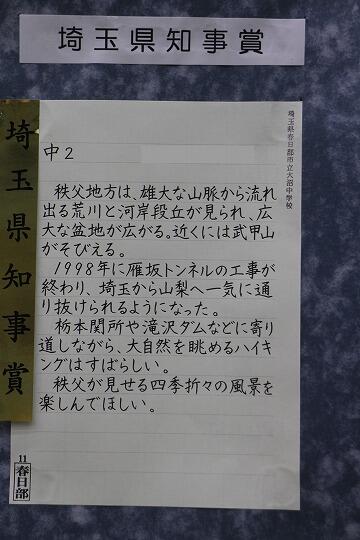 埼玉県知事賞
埼玉県知事賞
埼玉県春日部市立大沼中学校
中2
秩父地方は、雄大な山脈から流れ
出る荒川と河岸段丘が見られ、広
大な盆地が広がる。近くには武甲山
がそびえる。
1998年に雁坂トンネルの工事が
終わり、埼玉から山梨へ一気に通
り抜けられるようになった。
栃本関所や滝沢ダムなどに寄り
道しながら、大自然を眺めるハイキ
ングはすばらしい。
秩父が見せる四季折々の風景を
楽しんでほしい。
11
春日部